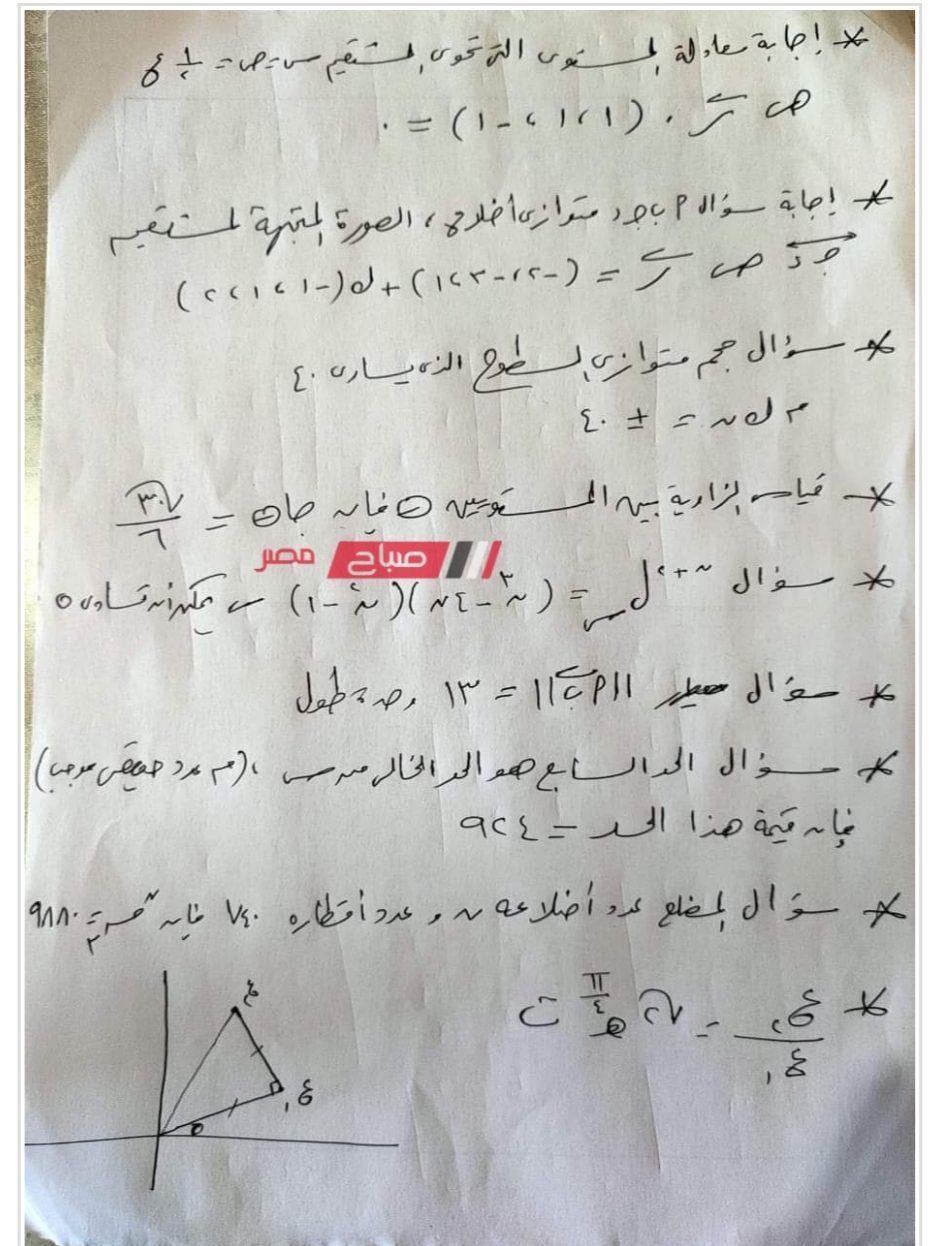 * إجابة معادلة المستوى التى تحوى المستقيم س = ص = ١/٢ ع
هى ر . (١ ، ١ ، -١) = ٠
* إجابة سؤال أ ب جـ د متوازى أضلاع ، الصورة المتجهة للمستقيم
جـ د هى ر = (-٢ ، -٣ ، ١) + ك (-١ ، ١ ، ٢)
* سؤال حجم متوازى السطوح الذى يساوى ٤٠
م ك ن = ± ٤٠
* قياس الزاوية بين المستويين θ فإن جا θ = √٣٠/٦
صباح مصر
* سؤال ن+٢ ل س = (ن٣ - ٤ن)(ن٢ - ١) س يمكن أن تساوى ٥
* سؤال ||أ ب|| = ١٣ وحدة طول
* سؤال الحد السابع هو الحد الخالى من س ، (م عدد حقيقى موجب)
فإن قيمة هذا الحد = ٩٢٤
* سؤال المضلع عدد أضلاعه ن و عدد أقطاره ٧٤٠ فإن ن ق ٣ = ٩٨٨٠
* ع٢/ع١ = √٢ هـ π/٤ ت
ع٢
ع١
θ